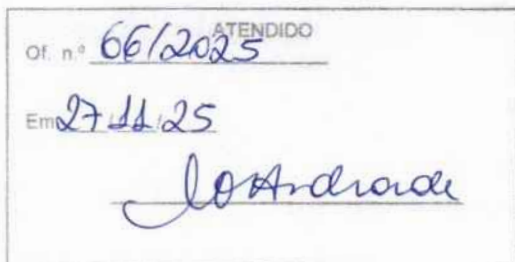 ATENDIDO
Of. n.º 66/2025
Em 27/11/25